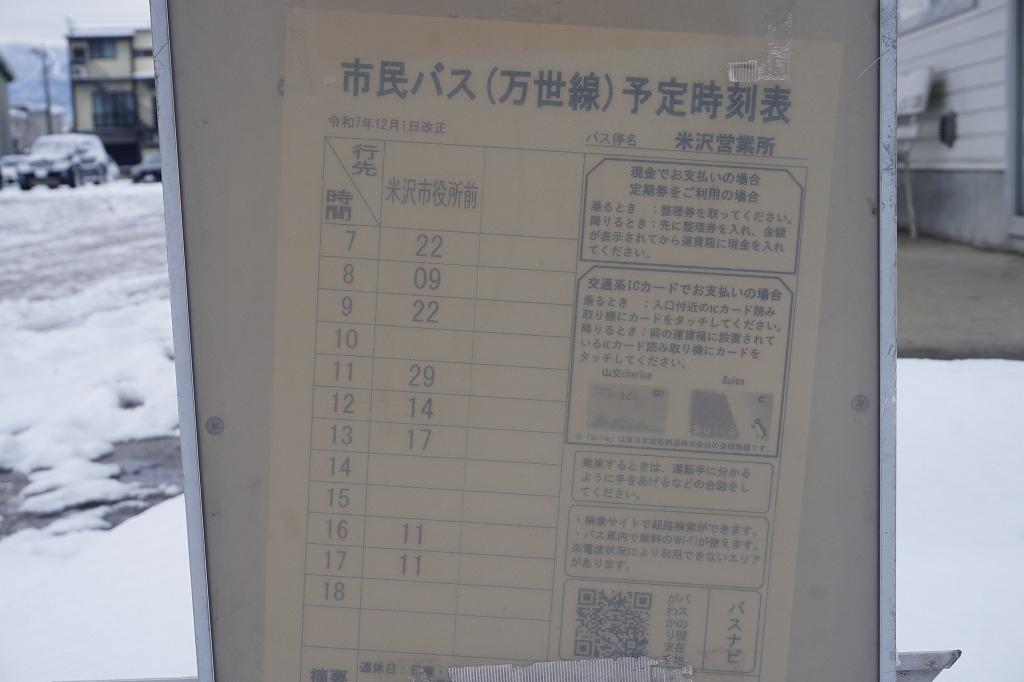 市民バス(万世線)予定時刻表
令和7年12月1日改正
バス停名 米沢営業所
行先
時間
米沢市役所前
7 22
8 09
9 22
10
11 29
12 14
13 17
14
15
16 11
17 11
18
摘要
運休日:日曜・
現金でお支払いの場合
定期券をご利用の場合
乗るとき :整理券を取ってください。
降りるとき:先に整理券を入れ、金額
が表示されてから運賃箱に現金を入れ
てください。
交通系ICカードでお支払いの場合
乗るとき :入口付近のICカード読み
取り機にカードをタッチしてください。
降りるとき:前の運賃箱に設置されて
いるICカード読み取り機にカードを
タッチしてください。
山交cherica
Suica
cherica
Suica
※「Suica」は東日本旅客鉄道株式会社の登録商標です。
乗車するときは、運転手に分かる
ように手をあげるなどの合図をし
てください。
・検索サイトで経路検索ができます。
・バス車内で無料のWi-Fiが使えます。
※電波状況により利用できないエリア
があります。
バスの現在地
がわかります
バスナビ